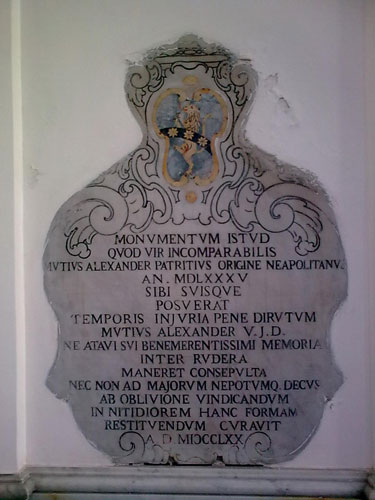 MONVMENTVM ISTVD
QVOD VIR INCOMPARABILIS
MVTIVS ALEXANDER PATRITIVS ORIGINE NEAPOLITANVS
AN. MDLXXXV
SIBI SVISQVE
POSVERAT
TEMPORIS INJVRIA PENE DIRVTVM
MVTIVS ALEXANDER V.J.D.
NE ATAVI SVI BENEMERENTISSIMI MEMORIA
INTER RVDERA
MANERET CONSEPVLTA
NEC NON AD MAJORVM NEPOTVMQ. DECVS
AB OBLIVIONE VINDICANDVM
IN NITIDIOREM HANC FORMAM
RESTITVENDVM CVRAVIT
A. D. MDCCLXX